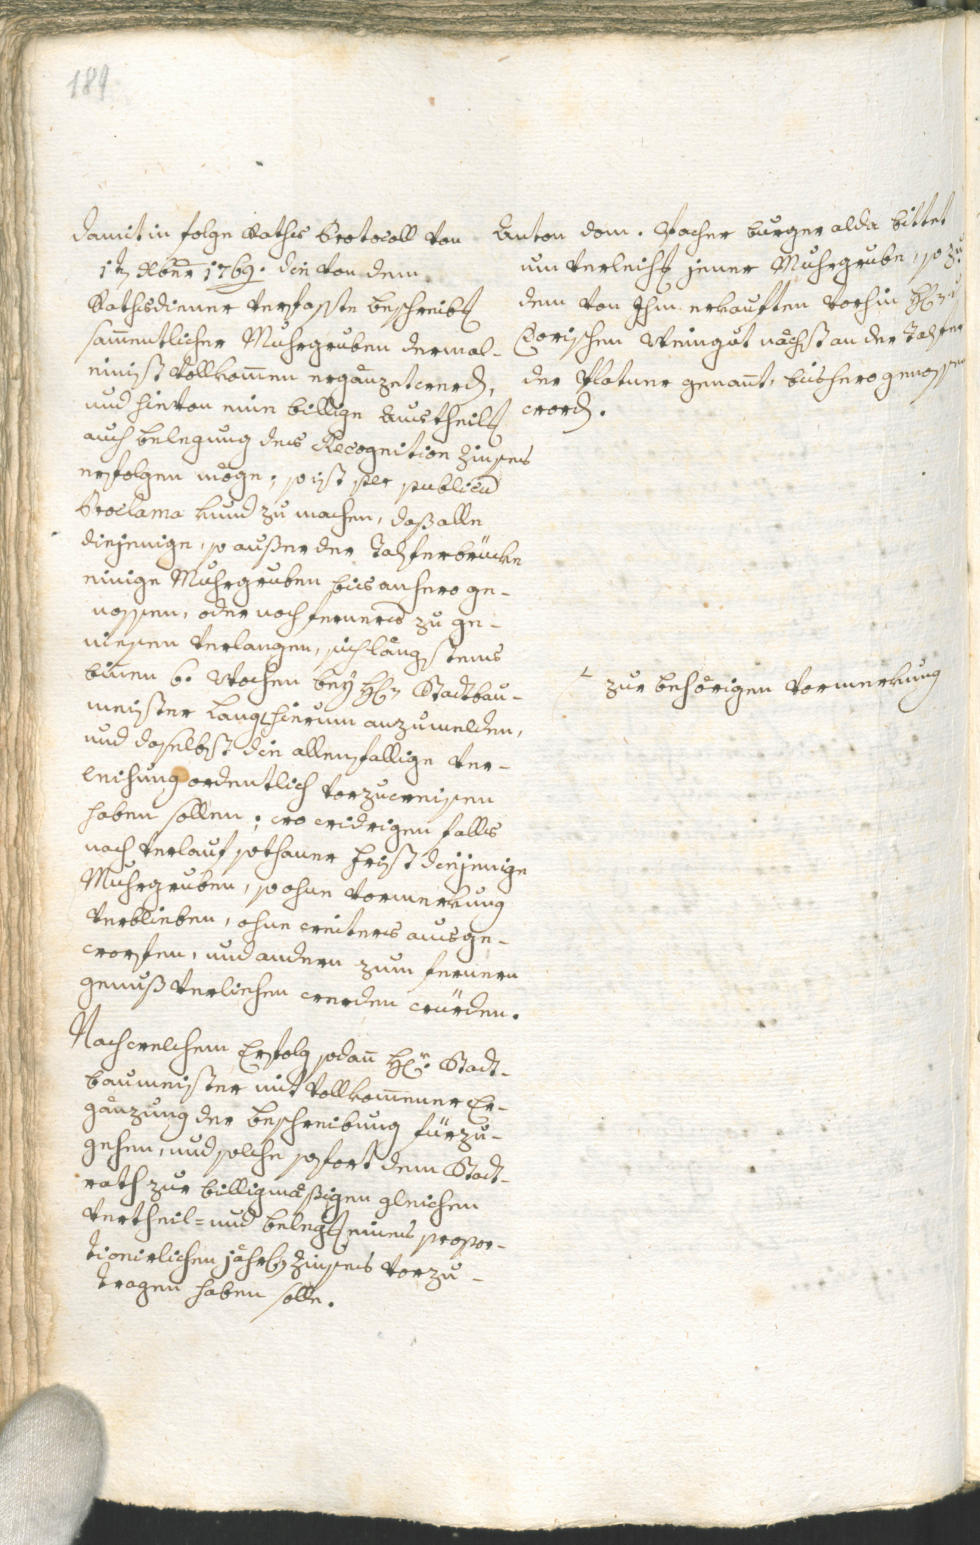 189
Damit in folge Raths Protocoll von
1ten Xber 1769. die von dem
Rathsdiener verfasste beschreibg
sam̄entlicher Muhrgruben dermal-
einist vollkom̄en ergänzet werd,
und hievon eine billige austheilg
auch belegung des Recognition Zinses
erfolgen möge; so ist per publicū
Proclama kund zu machen, daß alle
diejenige, so ausser der Talferbrücke
einige Muhrgruben bis anhero ge-
nossen, oder noch ferners zu ge-
niessen verlangen, sich längstens
binen 6. Wochen bey H: Stadtbau-
meister Lang hierum anzumelden,
und daselbst die allenfallige ver-
leihung ordentlich vorzuweisen
haben sollen; wo widrigen falls
nach verlauf sothaner frist diejenige
Muhrgruben, so ohne vormerkung
verblieben, ohne weiters ausge-
worfen, und andern zum fernern
genuß verliehen werden würden.
Nach welchem Erfolg sodan̄ H: Stadt-
baumeister mit vollkom̄ener Er-
gänzung der beschreibung fürzu-
gehen, und solche sofort dem Stadt-
rath zur billigmäßigen gleichen
vertheil= und belegg eines propor-
tionirlichen jährl: Zinses vorzu-
tragen haben solle.
Anton dom. Pacher burger alda bittet
um verleihg jener Muhrgrube, so zu
dem von Ihm erkauften vorhin
Weingut nächst an der Talfer
der Platner genan̄t, bishero genossen
word.
zur behörigen vormerkung